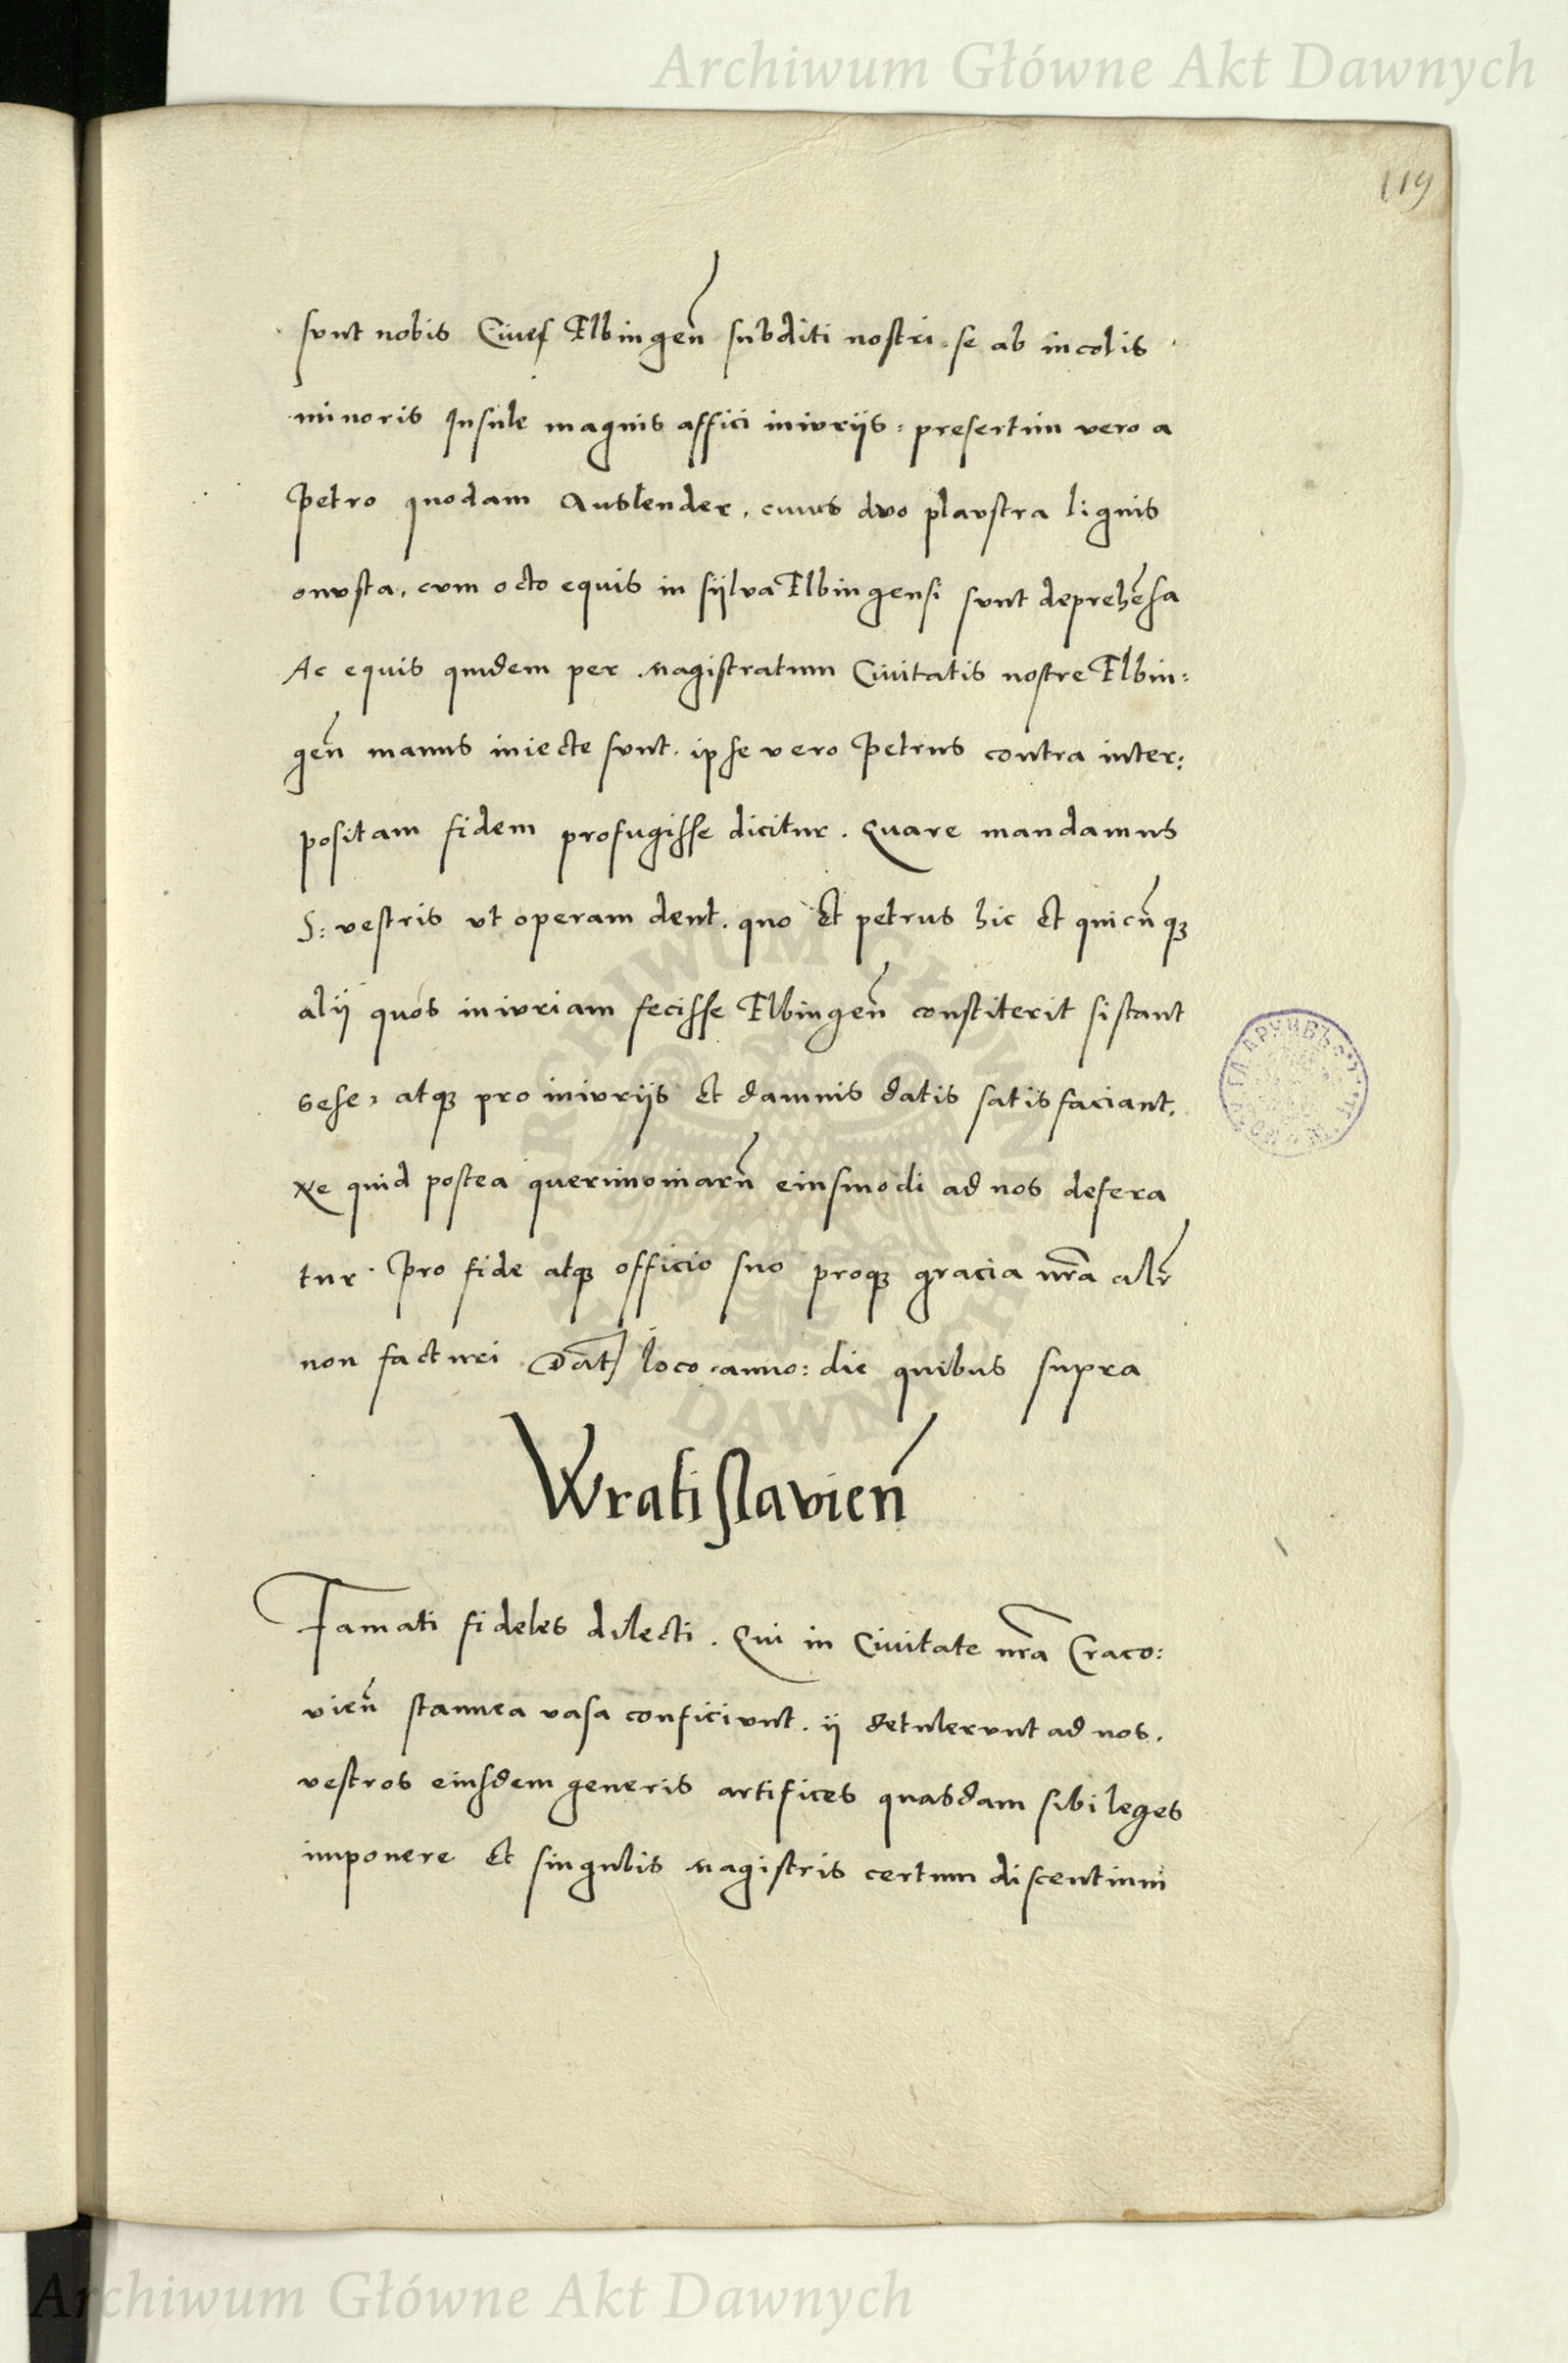 Archiwum Główne Akt Dawnych
119
sunt nobis Ciues Elbingen̄ subditi nostri. se ab incolis
minoris Insule magnis affici iniuriis: presertim vero a
Petro quodam Auslender, cuius duo plaustra lignis
onusta, cum octo equis in sylva Elbingensi sunt deprehēsa
Ac equis quidem per Magistratum Civitatis nostre Elbin:
gen̄ manus iniecte sunt. ipse vero Petrus contra inter:
positam fidem profugisse dicitur. Quare mandamus
S: vestris ut operam dent. quo et petrus hic et quicūqꝫ
alij quos iniuriam fecisse Elbingen̄ constiterit sistant
sese, atqꝫ pro iniuriis et damnis datis satisfaciant.
Ne quid postea querimoniarū eiusmodi ad nos defera
tur. Pro fide atqꝫ officio suo proqꝫ gracia nr̄a alr̄
non facturi. Dat̄ loco. anno: die quibus supra
Wratislavien̄
Famati fideles dilecti. Qui in Civitate nr̄a Craco:
vien̄ stannea vasa conficiunt. ij detulerunt ad nos.
vestros eiusdem generis artifices quasdam sibi leges
imponere et singulis Magistris certum discentium
Archiwum Główne Akt Dawnych